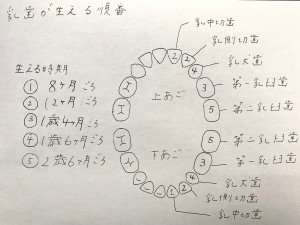 乳歯が生える順番
生える時期
① 8ヶ月ごろ
② 12ヶ月ごろ
③ 1歳4ヶ月ごろ
④ 1歳6ヶ月ごろ
⑤ 2歳6ヶ月ごろ
上あご
下あご
乳中切歯
乳側切歯
乳犬歯
第一乳臼歯
第二乳臼歯
第二乳臼歯
第一乳臼歯
乳犬歯
乳側切歯
乳中切歯
2
2
4
3
5
5
3
4
2
1